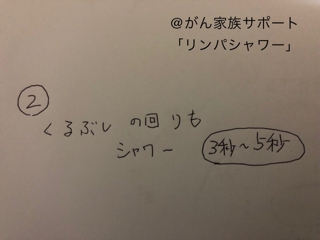 @がん家族サポート
「リンパシャワー」
②
くるぶしの回りも
シャワー 3秒~5秒